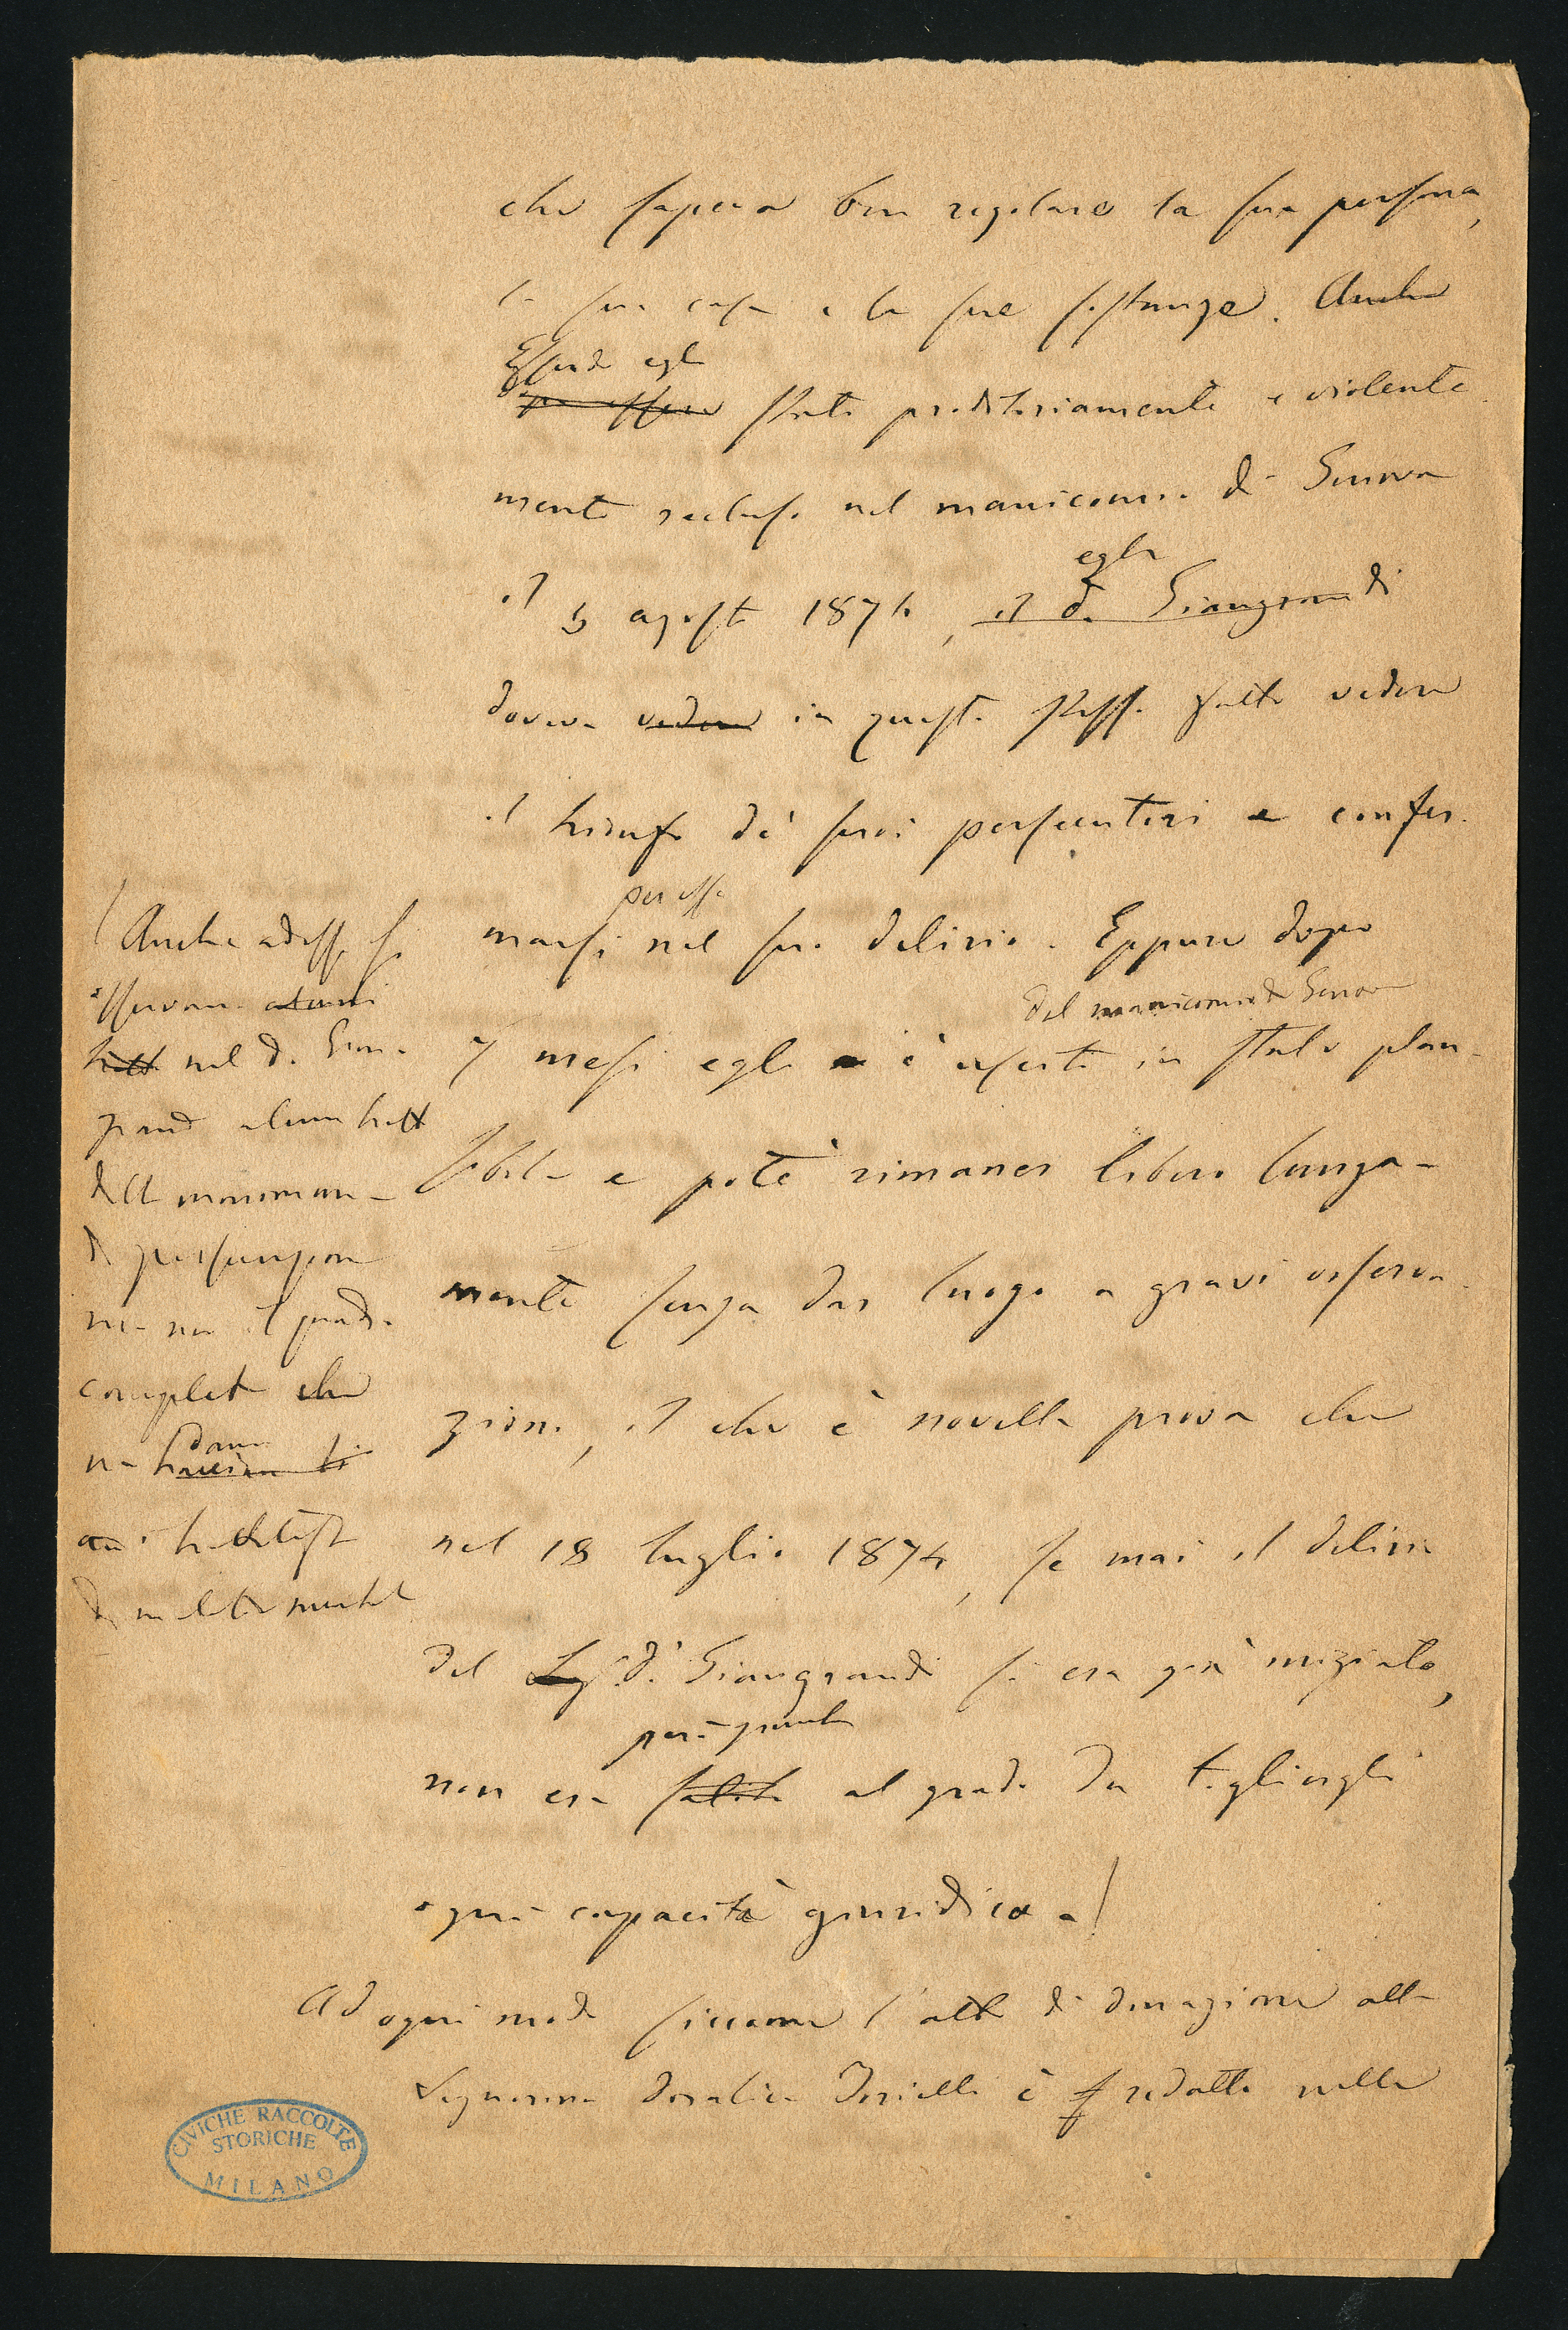 che sapeva ben regolare la sua persona,
la sua casa e le sue sostanze. Anche
Essendo egli
per essere stato proditoriamente e violente
mente recluso nel manicomio di Genova
egli
il 5 agosto 1874, il d. Giangrandi
doveva vedere in questo stesso fatto vedere
il trionfo de' suoi persecutori e confer-
per esso
marsi nel suo delirio. Eppure dopo
del manicomio di Genova
7 mesi egli è uscito in stato plau-
sibile e potè rimaner libero lunga-
mente senza dar luogo a gravi osserva-
zioni, il che è novella prova che
nel 18 luglio 1874, se mai il delirio
del Sig. d. Giangrandi si era già iniziato,
però giunto
non era salito al grado da togliergli
ogni capacità giuridica
Anche adesso si
osservano alcuni
tratti nel d. Gian-
grandi alcuni tratti
della monomania
di persecuzione
ma non il quadro
completo che
danno
ne
i trattatisti
di malattie mentali
Ad ogni modo siccome l'atto di donazione alla
Signorina Doralice è redatto nella
CIVICHE RACCOLTE
STORICHE
MILANO